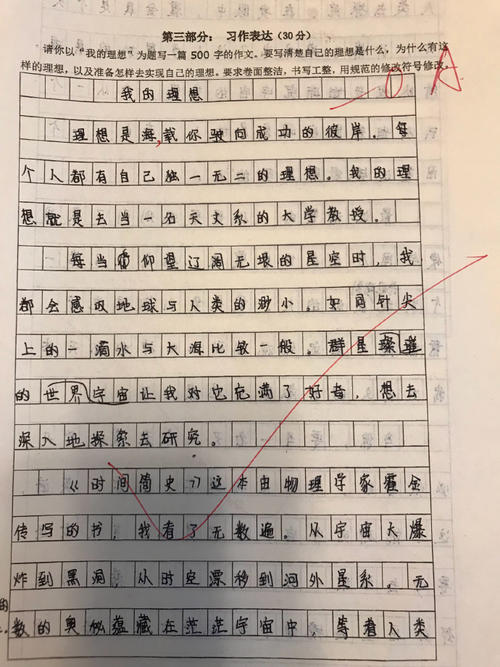 第三部分： 习作表达（30分）
请你以“我的理想”为题写一篇 500 字的作文。要写清楚自己的理想是什么，为什么有这
样的理想，以及准备怎样去实现自己的理想。要求卷面整洁，书写工整，用规范的修改符号修改。
我的理想
理想是海，载你驶向成功的彼岸。每
个人都有自己独一无二的理想。我的理
想就是去当一名天文系的大学教授。
每当仰望辽阔无垠的星空时，我
都会感叹地球与人类的渺小。如同针尖
上的一滴水与大海比较一般。群星璀璨
的世界宇宙让我对它充满了好奇，想去
深入地探索去研究。
《时间简史》这本由物理学家霍金
传写的书，我看了无数遍。从宇宙大爆
炸到黑洞，从时空漂移到河外星系。无
数的奥秘蕴藏在茫茫宇宙中，等着人类
的